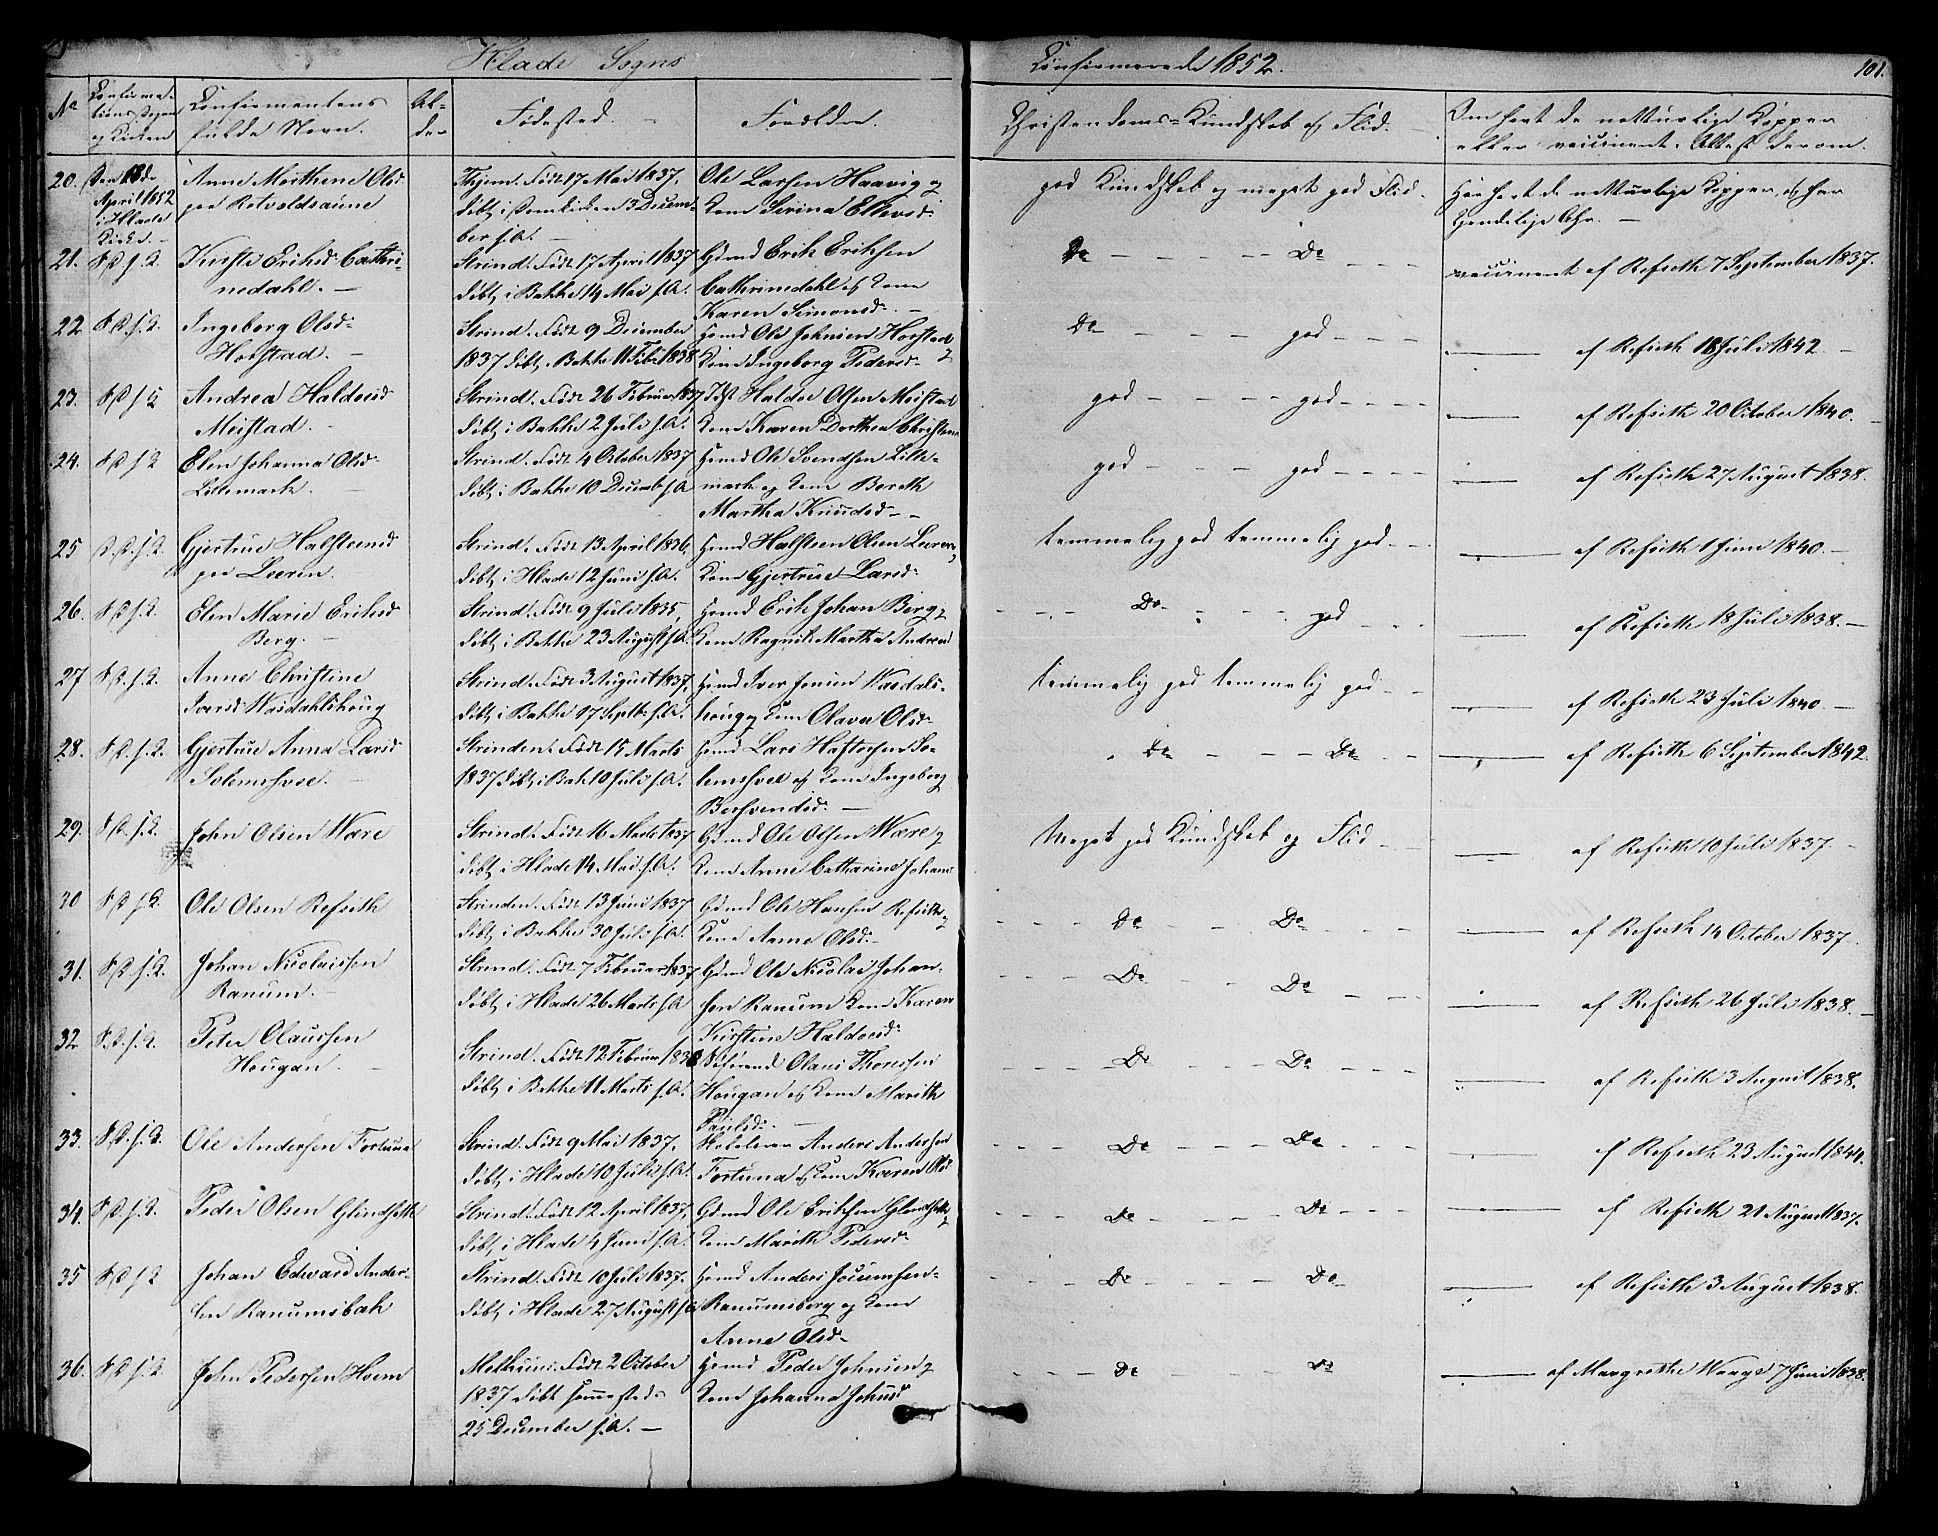 Hlade Sogns
Confirmerede 1852.
101.
No
Confirma-
tions Dagen
og Kirken
Confirmentens
fulde Navn.
Al-
der
Fødested.
Forældre.
Christendoms-Kundskab og Flid.
Om havt de naturlige Kopper
eller vaccineret. Attest derom.
20. Den 18de
April 1852
i Hlade
Kirke.
Anne Marthine Olsd
paa Rotvoldsaune
Født 17 Mai 1837,
døbt i Domkirken 3 Decem-
ber s. A.
Ole Larsen Haavig og
Kone Sirina Ellevsd.
god Kundskab og meget god Flid.
Har havt de naturlige Kopper, og har
kjendelige Ahr.
21.
Kirsti Eriksd. Cathri-
nedahl.
Strind. Født 17 April 1837
døbt i Bakke 14 Mai s. A.
Gdmd Erik Eriksen
Cathrinedahl og Kone
Karen Simonsd.
Do Do
vaccineret af Refseth 7 September 1837.
22
Ingeborg Olsd.
Hofstad.
Strind. Født 9 December
1837 døbt, Bakke 11 Feb. 1838
Hmd Ole Johnsen Hofstad
Kone Ingeborg Pedersd.
Do god
af Refseth 18 Juli 1842
23.
Andrea Haldorsd
Meistad.
Strind. Født 26 Februar 1837
døbt i Bakke 2 Juli s. A.
Haldor Olsen Meistad
Kone Karen Dorthea Christens
god god
af Refseth 20 October 1840.
24.
Elen Johanna Olsd.
Lillemark.
Strind. Født 4 October 1837
døbt i Bakke 10 Decemb s. A
Hmd Ole Svendsen Lille-
mark og Kone Bereth
Martha Knudsd.
god god
af Refseth 27 August 1838.
25
Gjertrue Halsteensd
paa Leeren.
Strind. Født 13 April 1836,
døbt i Hlade 12 Juni s. A.
Hmd Halsteen Olsen Leeren,
Kone Gjertrue Larsd.
temmelig god temmelig god
af Refseth 1 Juni 1840.
26.
Elen Marie Eriksd
Berg.
Strind. Født 9 Juli 1835,
døbt i Bakke 23 August s. A.
Hmd Erik Johan Berg og
Kone Ragnil Martha Andersd
Do god
af Refseth 18 Juli 1838.
27
Anne Christine
Iversd Wasdahlshoug
Strind. Født 3 August 1837,
døbt i Bakke 17 Septbr. s. A.
Hmd Iver Jonsen Wasdals-
houg og Kone Olava Olsd.
temmelig god temmelig god
af Refseth 23 Juli 1840.
28.
Gjertrue Anna Larsd
Solemshvee.
Strinden. Født 15 Marts
1837 døbt, i Bak. 10 Juli s. A.
Hmd Lars Haftorsen So-
lemshvee og Kone Ingeborg
Bersvendsd.
Do Do
af Refseth 6 September 1842.
29.
John Olsen Være
Strind. Født 16 Marts 1837
døbt i Hlade 14 Mai s. A.
Gdmd Ole Olsen Være og
Kone Anne Catharina Johans
Meget god Kundskab og Flid
af Refseth 10 Juli 1837.
30
Ole Olsen Refseth
Strinden. Født 13 Juni 1837
døbt i Bakke 30 Juli s. A.
Gdmd Ole Hansen Refseth og
Kone Anne Olsd.
Do Do
af Refseth 14 October 1837.
31.
Johan Nicolaissen
Ranum.
Strind. Født 7 Februar 1837
døbt i Hlade 26 Marts s. A
Gdmd Ole Nicolai Johan-
sen Ranum Kone Karen
Kirstine Haldorsd.
Do Do
af Refseth 26 Juli 1838.
32
Peter Olaussen
Hougan.
Strind. Født 12 Februar 1838
døbt i Bakke 11 Marts s. A.
Olaus Thoressen
Hougan og Kone Marith
Paulsd.
Do Do
af Refseth 3 August 1838.
33.
Ole Andersen Fortuna
Strind. Født 9 Mai 1837,
døbt i Hlade 10 Juli s. A.
Anders Andersen
Fortuna og Kone Karen Olsd
Do Do
af Refseth 23 August 1844.
34.
Peder Olsen Glindseth
Strind. Født 12 April 1837,
døbt i Hlade 4 Juni s. A.
Gdmd Ole Eriksen Glindseth og
Kone Marith Pedersd.
Do Do
af Refseth 21 August 1837.
35
Johan Edvard Ander-
sen Ranumsbak
Strind. Født 10 Juli 1837.
døbt i Hlade 27 August s. A
Hmd Anders
Ranumsberg og Kone
Anne Olsd.
Do Do
af Refseth 3 August 1838.
36.
John Pedersen Hoem
Melhuus. Født 2 October
1837 døbt sammesteds
25 December s. A.
Hmd Peder Johnsen og
Kone Johanna Johnsd
Do Do
af Maagrethe Waage 7 Juni 1838.